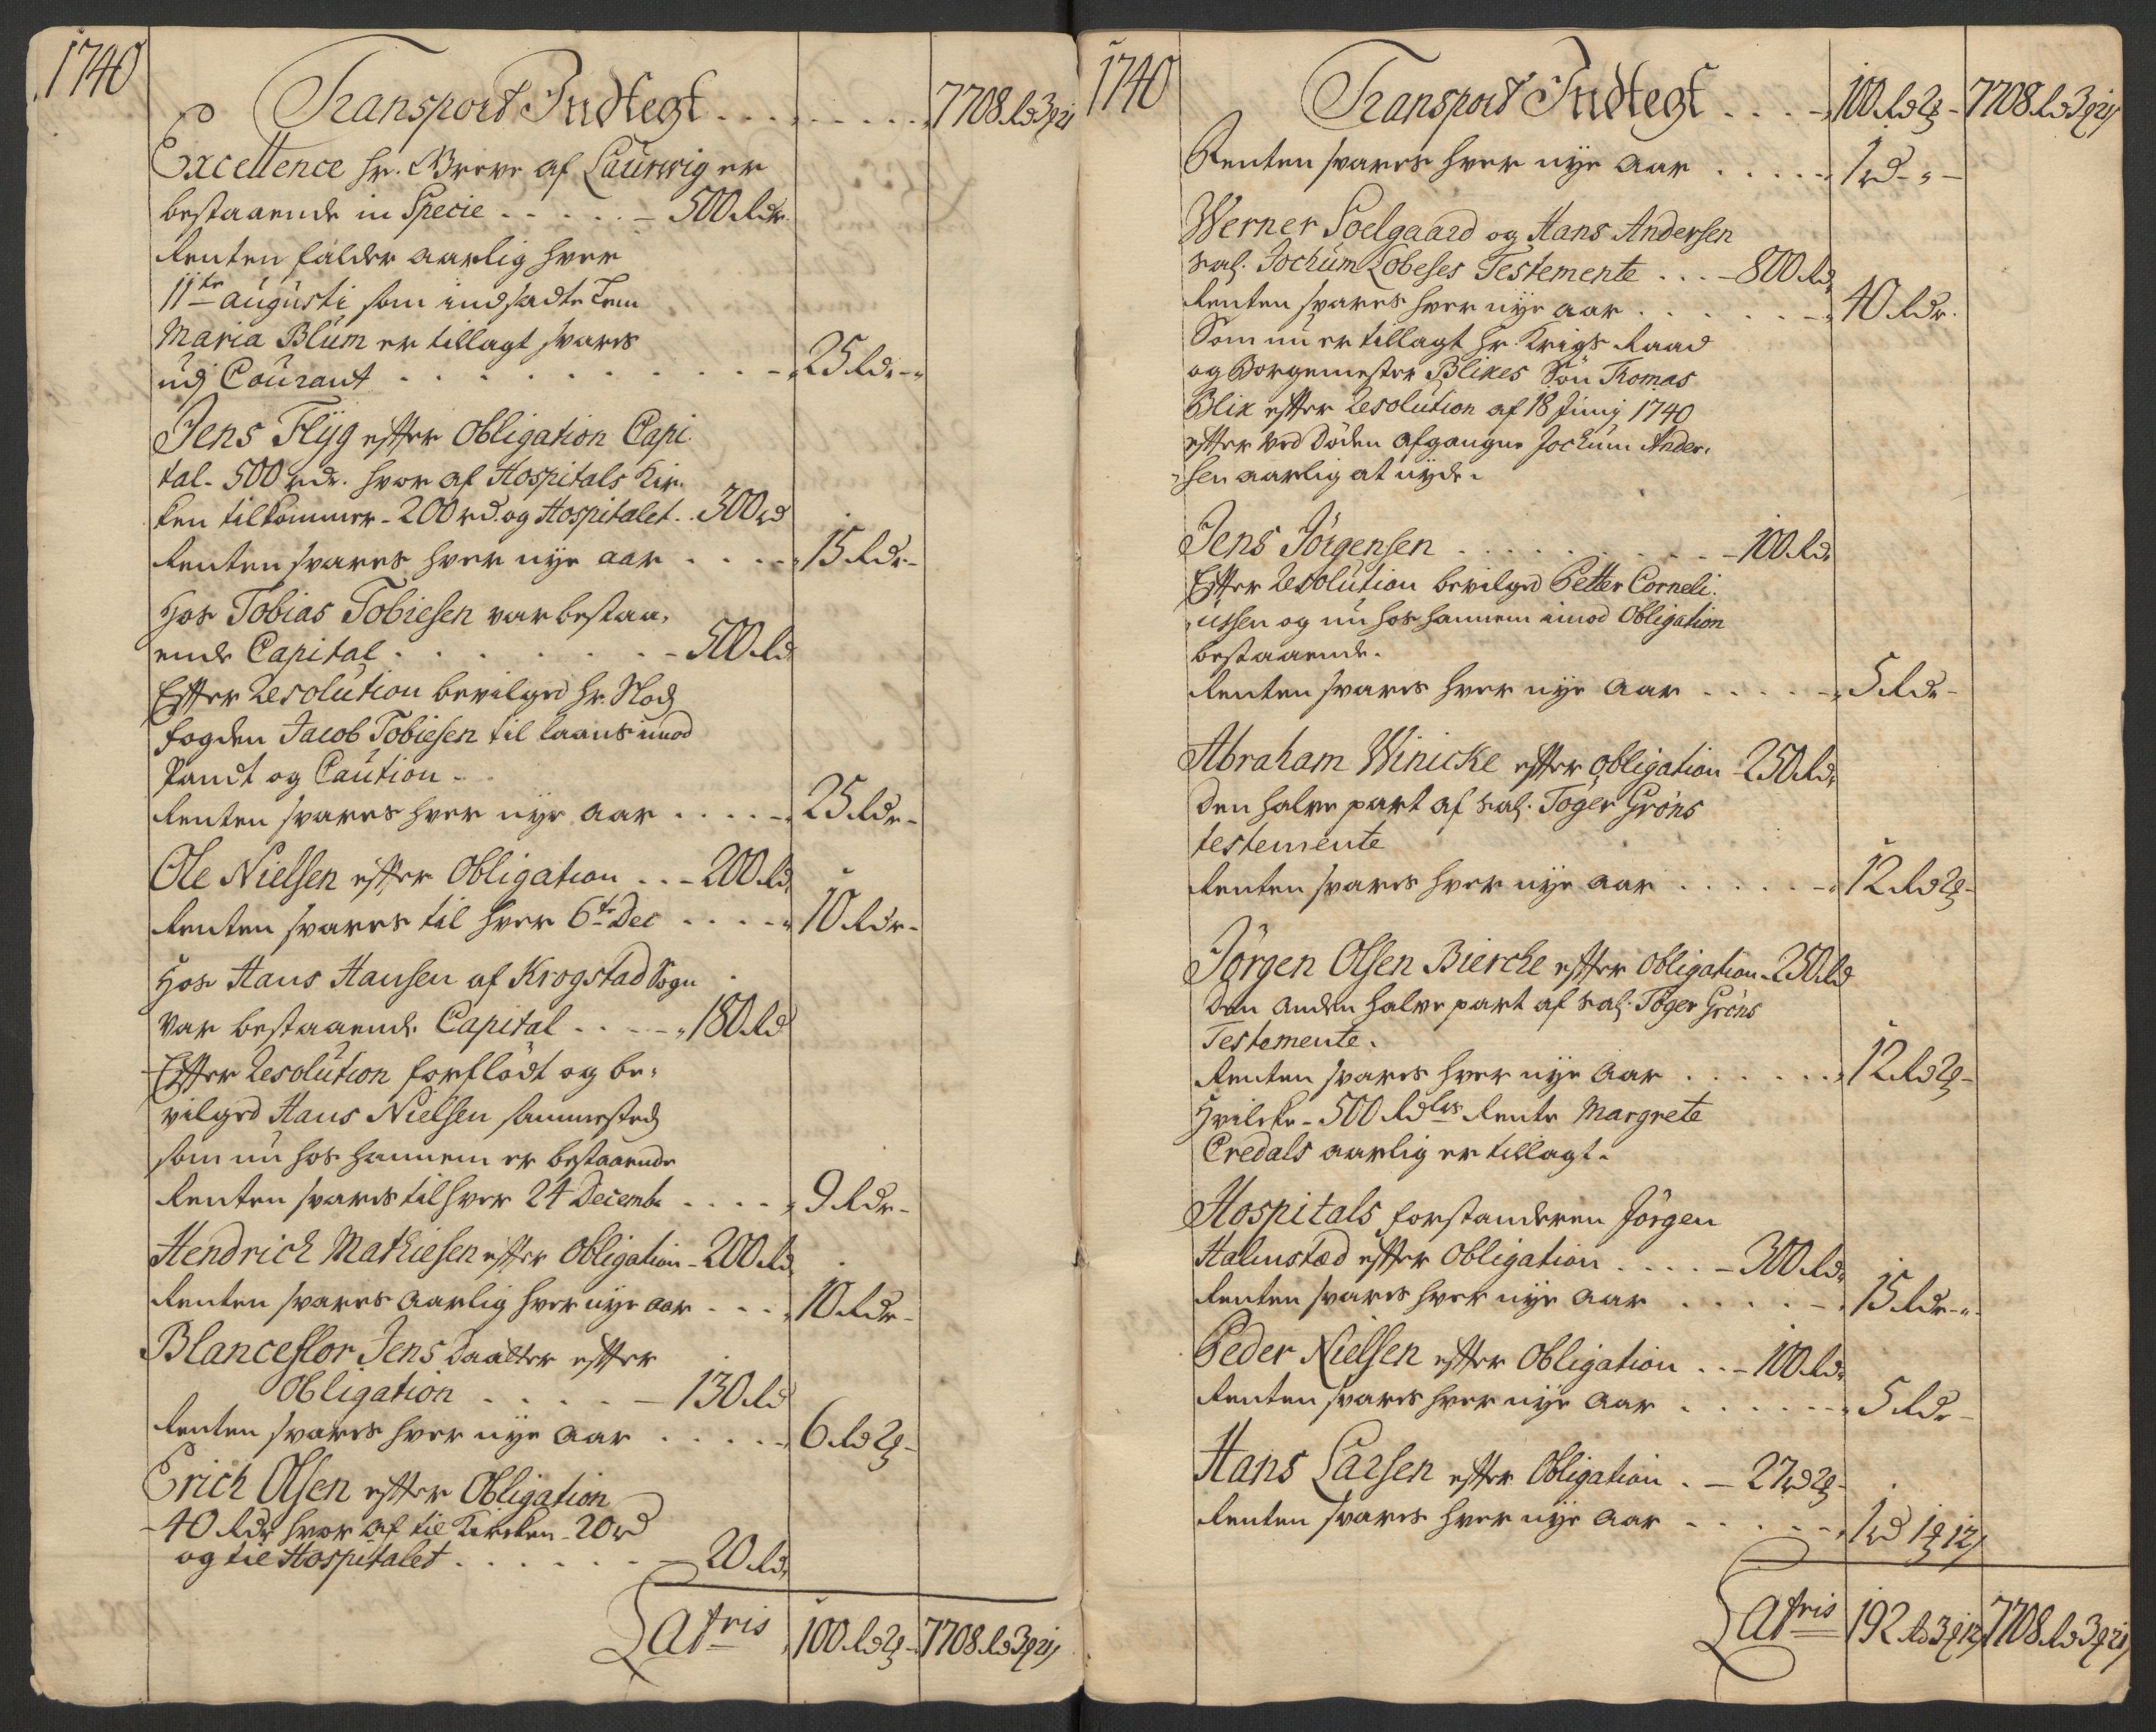 1740
Transport Indtegt . . . . . . . . . 7708 Rd 3 ₰ 21
Excellence hr. Greve af Laurwig er
bestaaende in Specie . . . . . - 500 Rdr.
Renten falder aarlig hver
11te augusti som indsadte Lem
Maria Blüm er tillagt svares
udj Courant . . . . . . . . . 25 Rdr
Jens Flÿg efter Obligation Capi
tal - 500 rdr. hvor af Hospitals Kir
ken tilkommer - 200 rd. og Hospitalet . . 300 rd
Renten svares hver nye aar . . . . 15 Rdr -
Hos Tobias Tobiesen var bestaa,
ende Capital . . . . . . . - 500 Rd
Efter Resolution bevilged hr. Slods
fogden Jacob Tobiesen til laans imod
Pandt og Caution -
Renten svares hver nye aar . . . . . 25 Rdr -
Ole Nielsen efter Obligation . . - 200 Rd
Renten svares til hver 6te Dec . . . . . 10 Rdr -
Hos Hans Hansen af Krogstad Sogn
var bestaaende Capital . . - - - 180 Rd
Efter Resolution forflödt og be,
vilged Hans Nielsen sammesteds
som nu hos hannem er bestaaende
Renten svares til hver 24 Decemb . . . . 9 Rdr -
Hendrich Mathiesen efter Obligation - 200 Rd
Renten svares aarlig hver nye aar . . . . 10 Rdr -
Blanceflor Jens daatter efter
Obligation . . . . . - 130 Rd
Renten svares hver nye aar . . . . . 6 Rd 2 ₰ -
Erich Olsen efter Obligation
- 40 Rdr hvor af til Kircken - 20 rd
og til Hospitalet . . . . . . - 20 Rd
Latris 100 Rd 2 ₰ - 7708 Rd 3 ₰ 21
1740
Transport Indtegt . . . . 100 Rd 2 ₰ - 7708 Rd 3 ₰ 21
Renten svares hver nye aar . . . . . 1 rd - " -
Werner Soelgaard og Hans Andersen
sal. Jochum Lobeses Testemente . . . - 800 Rd
Renten svares hver nye aar . . . . . . . 40 Rdr.
Som nu er tillagt hr. Krigs Raad
og Borgemester Blikes Sön Tomas
Blix efter Resolution af 18 Junij 1740
efter ved Döden afgangne Jochum Ander,
sen aarlig at nyde.
Jens Jörgensen . . . . . . . . . - 100 Rd
Efter Resolution bevilged Petter Corneli
ussen og nu hos hannem imod Obligation
bestaaende.
Renten svares hver nye aar . . . . . . 5 Rdr -
Abraham Winicke efter obligation - 250 Rd
den halve part af sal. Töger Gröns
testemente
Renten svares hver nye aar . . . . . . 12 Rd 2 ₰ -
Jörgen Olsen Bierche efter obligation - 250 Rd
den anden halve part af sal. Töger Gröns
Testemente.
Renten svares hver nye aar . . . . . . 12 Rd 2 ₰ -
Hvilcke - 500 Rdlrs Rente Margrete
Credals aarlig er tillagt.
Hospitals forstanderen Jörgen
Halmstæd efter Obligation . . . . - 300 Rd
Renten svares hver nye aar . . . . . . 15 Rdr - "
Peder Nielsen efter Obligation . . - 100 Rd
Renten svares hver nye aar . . . . . . . 5 Rdr -
Hans Larsen efter Obligation . - 27 rd 2 ₰ -
Renten svares hver nye aar . . . . . . 1 rd 1 ₰ 12
Latris 192 Rd 3 ₰ 12 7708 Rd 3 ₰ 21